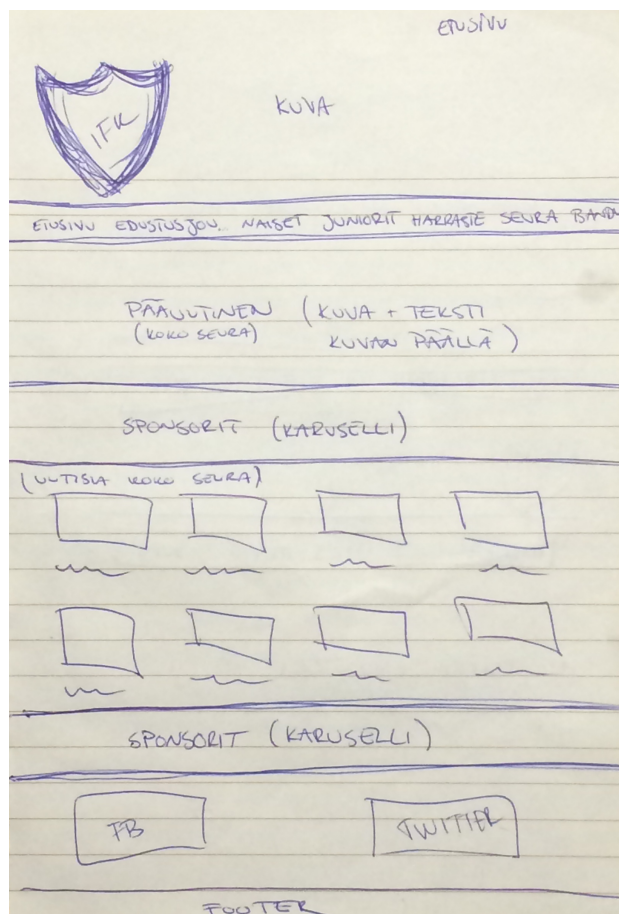 ETUSIVU
IFK
KUVA
ETUSIVU EDUSTUSJOU. NAISET JUNIORIT HARRASTE SEURA BANDY
PÄÄUUTINEN (KUVA + TEKSTI
(KOKO SEURA) KUVAN PÄÄLLÄ)
SPONSORIT (KARUSELLI)
(UUTISIA KOKO SEURA)
SPONSORIT (KARUSELLI)
FB TWITTER
FOOTER